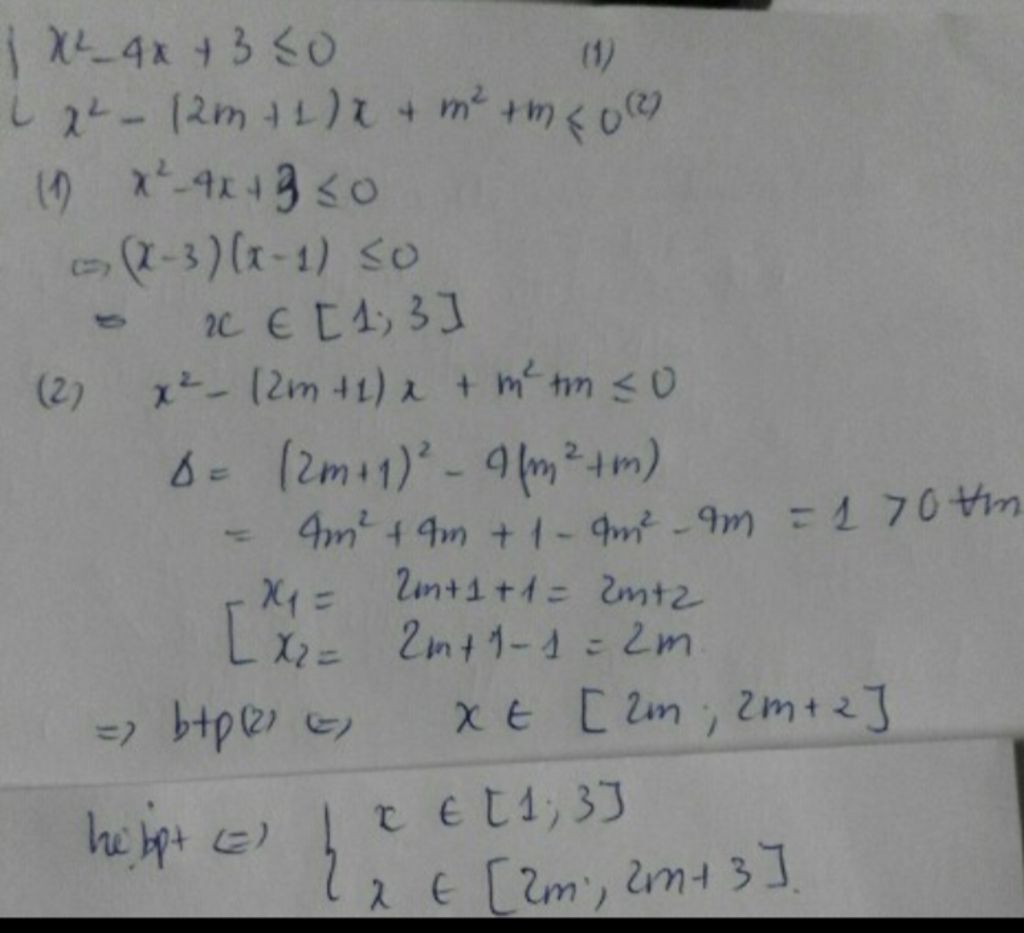 { x² - 4x + 3 ≤ 0 (1)
x² - (2m + 1)x + m² + m ≤ 0 (2)
(1) x² - 4x + 3 ≤ 0
⇔ (x - 3)(x - 1) ≤ 0
⇔ x ∈ [1; 3]
(2) x² - (2m + 1)x + m² + m ≤ 0
Δ = (2m + 1)² - 4(m² + m)
= 4m² + 4m + 1 - 4m² - 4m = 1 > 0 ∀m
[ x₁ = 2m + 1 + 1 = 2m + 2
x₂ = 2m + 1 - 1 = 2m
⇒ btp (2) ⇔ x ∈ [2m; 2m + 2]
hệ bpt ⇔ { x ∈ [1; 3]
x ∈ [2m; 2m + 3].